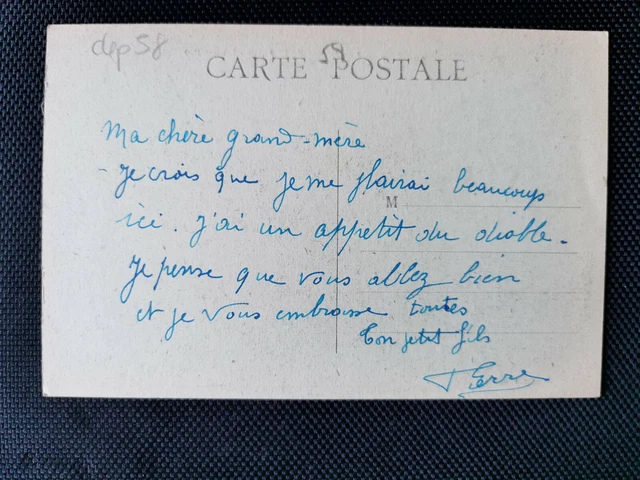 dep 58
58
CARTE POSTALE
Ma chère grand-mère
Je crois que je me plairai beaucoup
M
ici. j'ai un appetit du diable.
Je pense que vous allez bien
et je vous embrasse toutes
Ton petit fils
Pierre